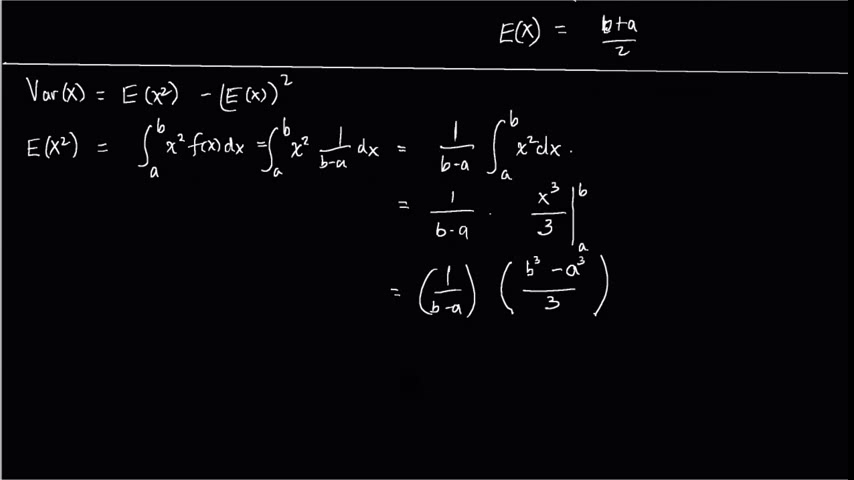 E(X) = (b+a)/2
Var(X) = E(X²) - (E(X))²
E(X²) = ∫ₐᵇ x² f(x) dx = ∫ₐᵇ x² 1/(b-a) dx = 1/(b-a) ∫ₐᵇ x² dx.
= 1/(b-a) · x³/3 |ₐᵇ
= (1/(b-a)) ((b³ - a³)/3)